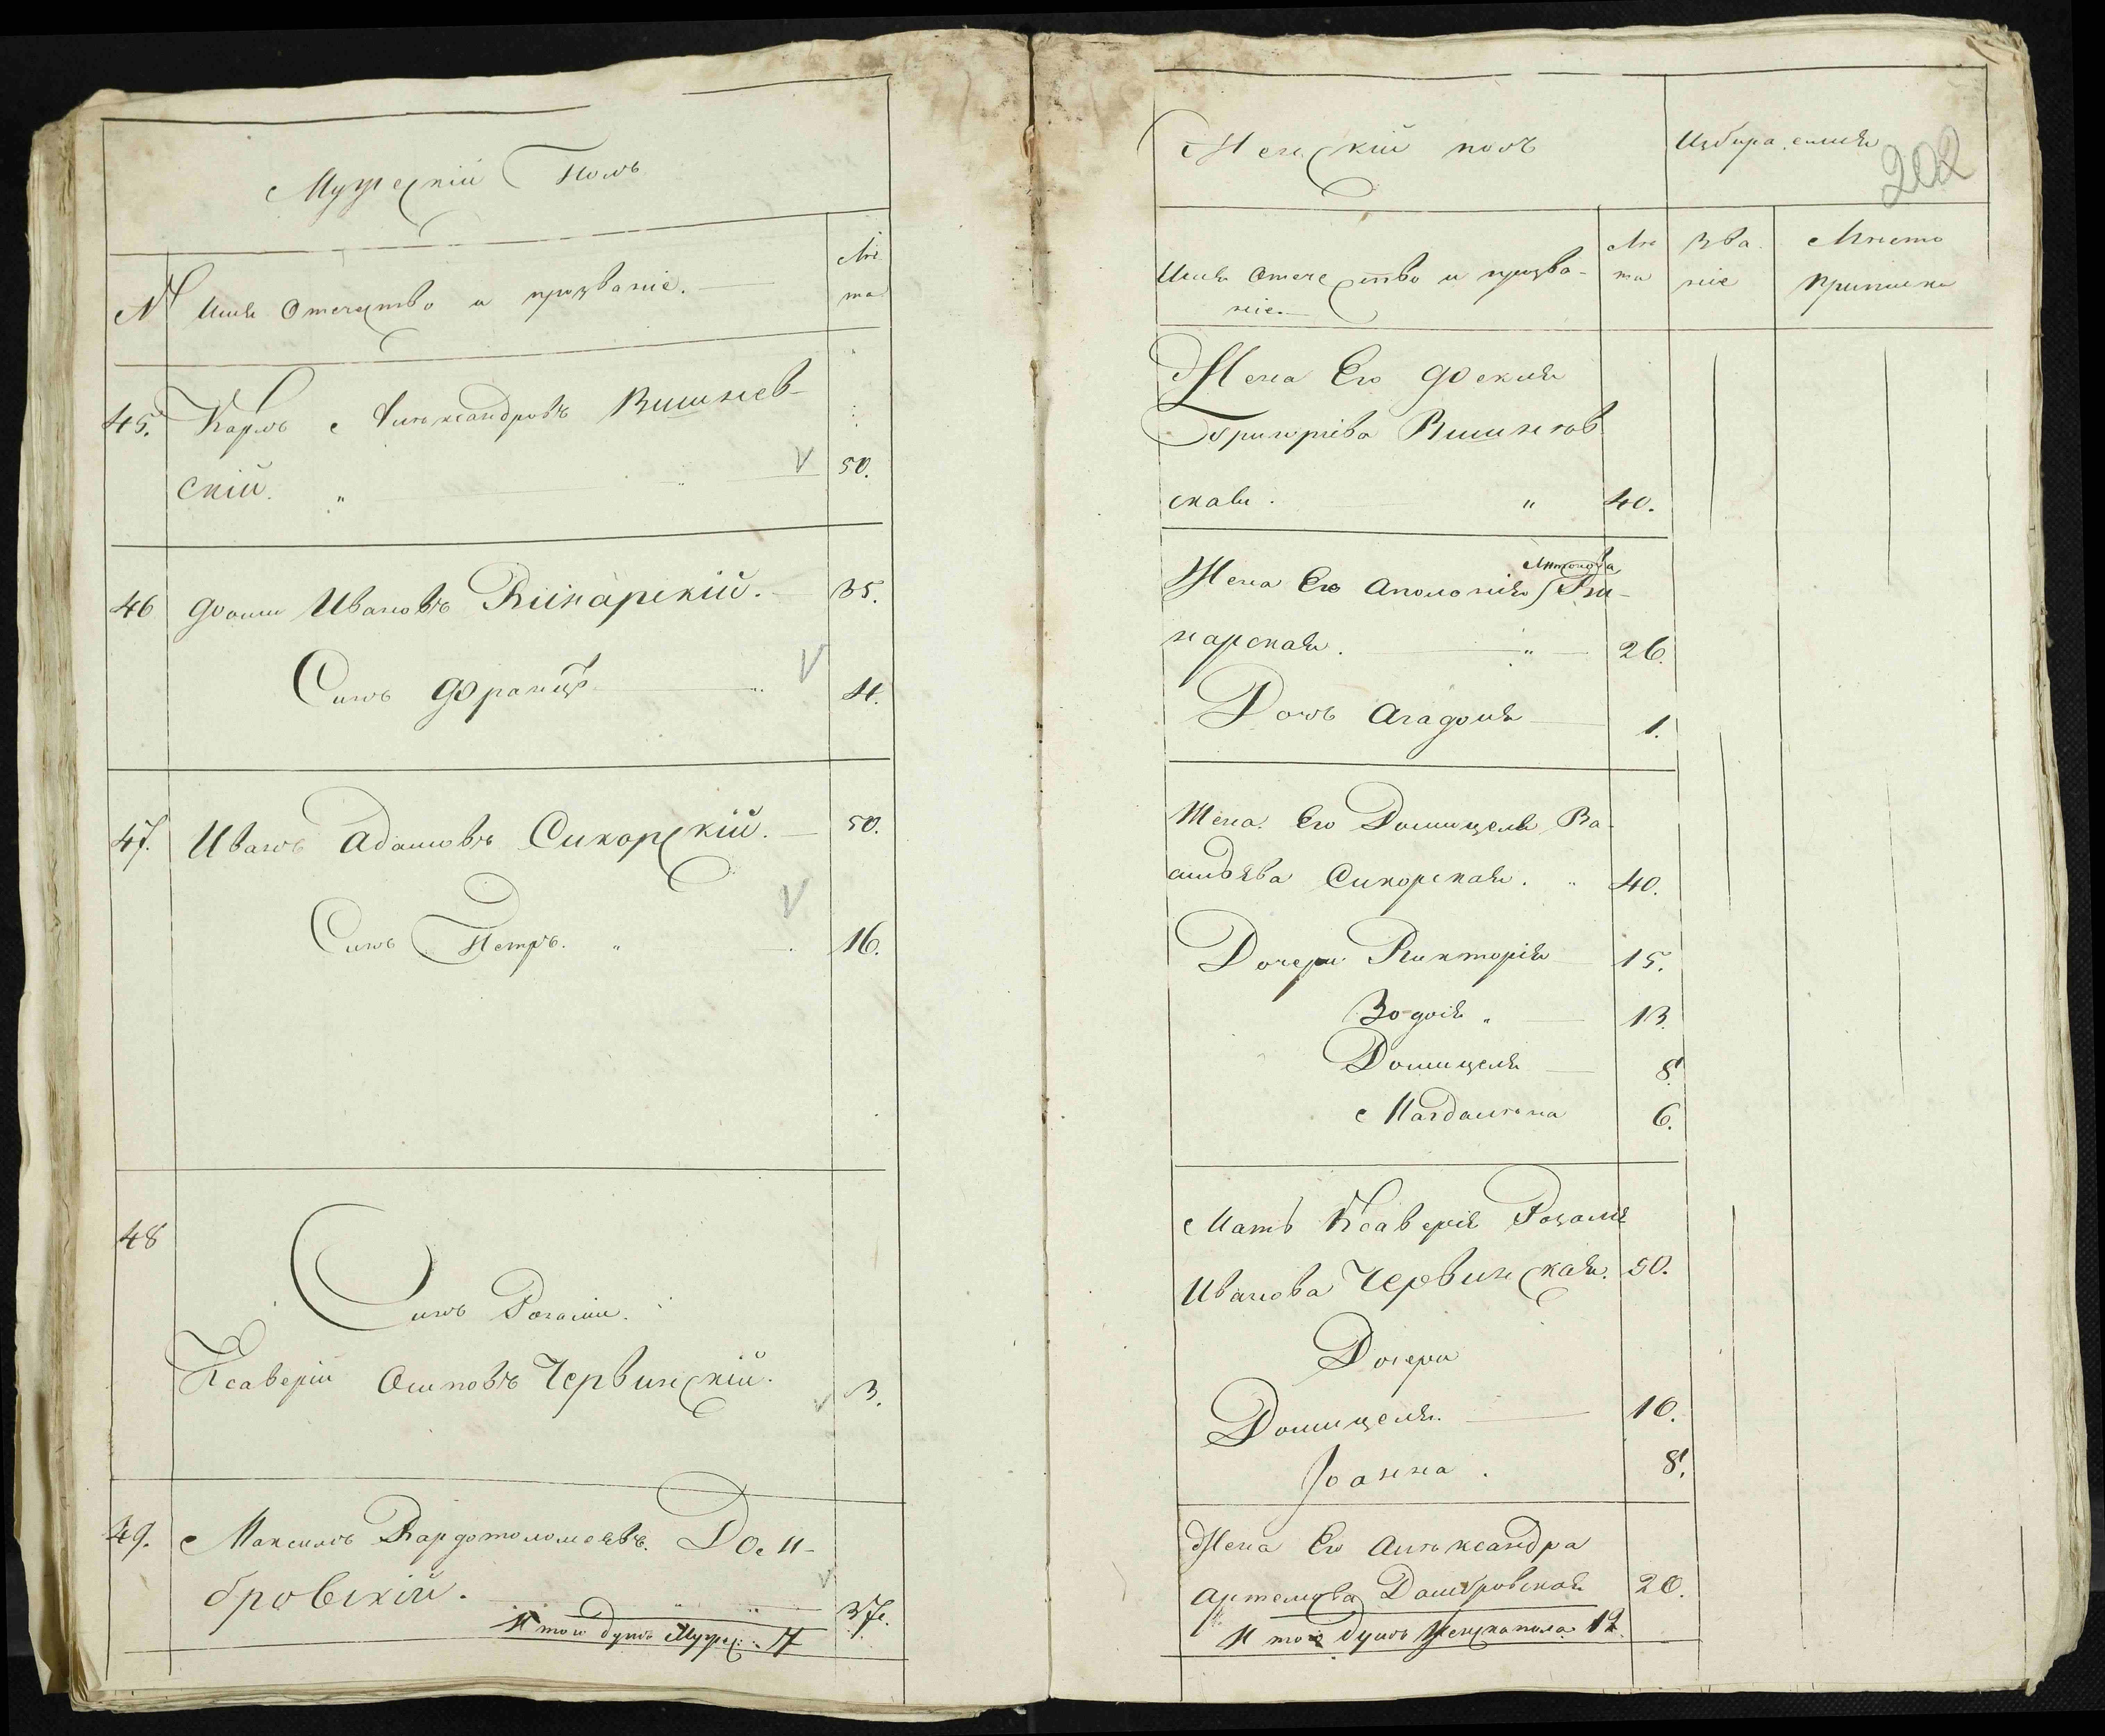 Мужескій Полъ
№ Имя Отечество и прозваніе. Лѣ
та
45. Карлъ Александровъ Вишнев-
скій. 50.
46 Фома Ивановъ Винарскій. 35.
Сынъ Францъ 4.
47. Иванъ Адамовъ Сикорскій. 50.
Сынъ Петръ. 16.
48
Сынъ Розаліи.
Ксаверій Осиповъ Червинскій. 3.
49. Максимъ Варфоломеевъ Дом-
бровскій. 37.
Итого душъ Мужес: 7
Женскій полъ
202
Имя Отечество и прозва-
ніе.
Лѣ
та
Зва
ніе
Мѣсто
Приписки
Жена Его Фекля
Григоріева Вишнев
ская. 40.
Антонова
Жена Его Аполонія Ви-
нарская. 26.
Дочь Агафія 1.
Жена Его Домицеля Ва-
Сикорская. 40.
Дочери Викторія 15.
Зофія 13.
Домицеля 8.
Магдалена 6.
Мать Ксаверія Розалія
Иванова Червинская. 50.
Дочери
Домицеля. 10.
Іоанна. 8.
Жена Его Александра
Артемова Домбровская 20.
Итого душъ Женска пола 12.